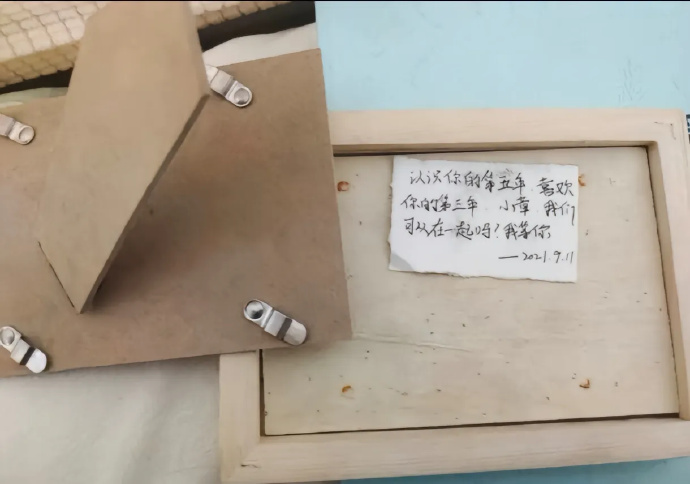 认识你的第五年,喜欢
你的第三年,小章 我们
可以在一起吗?我等你
——2021.9.11